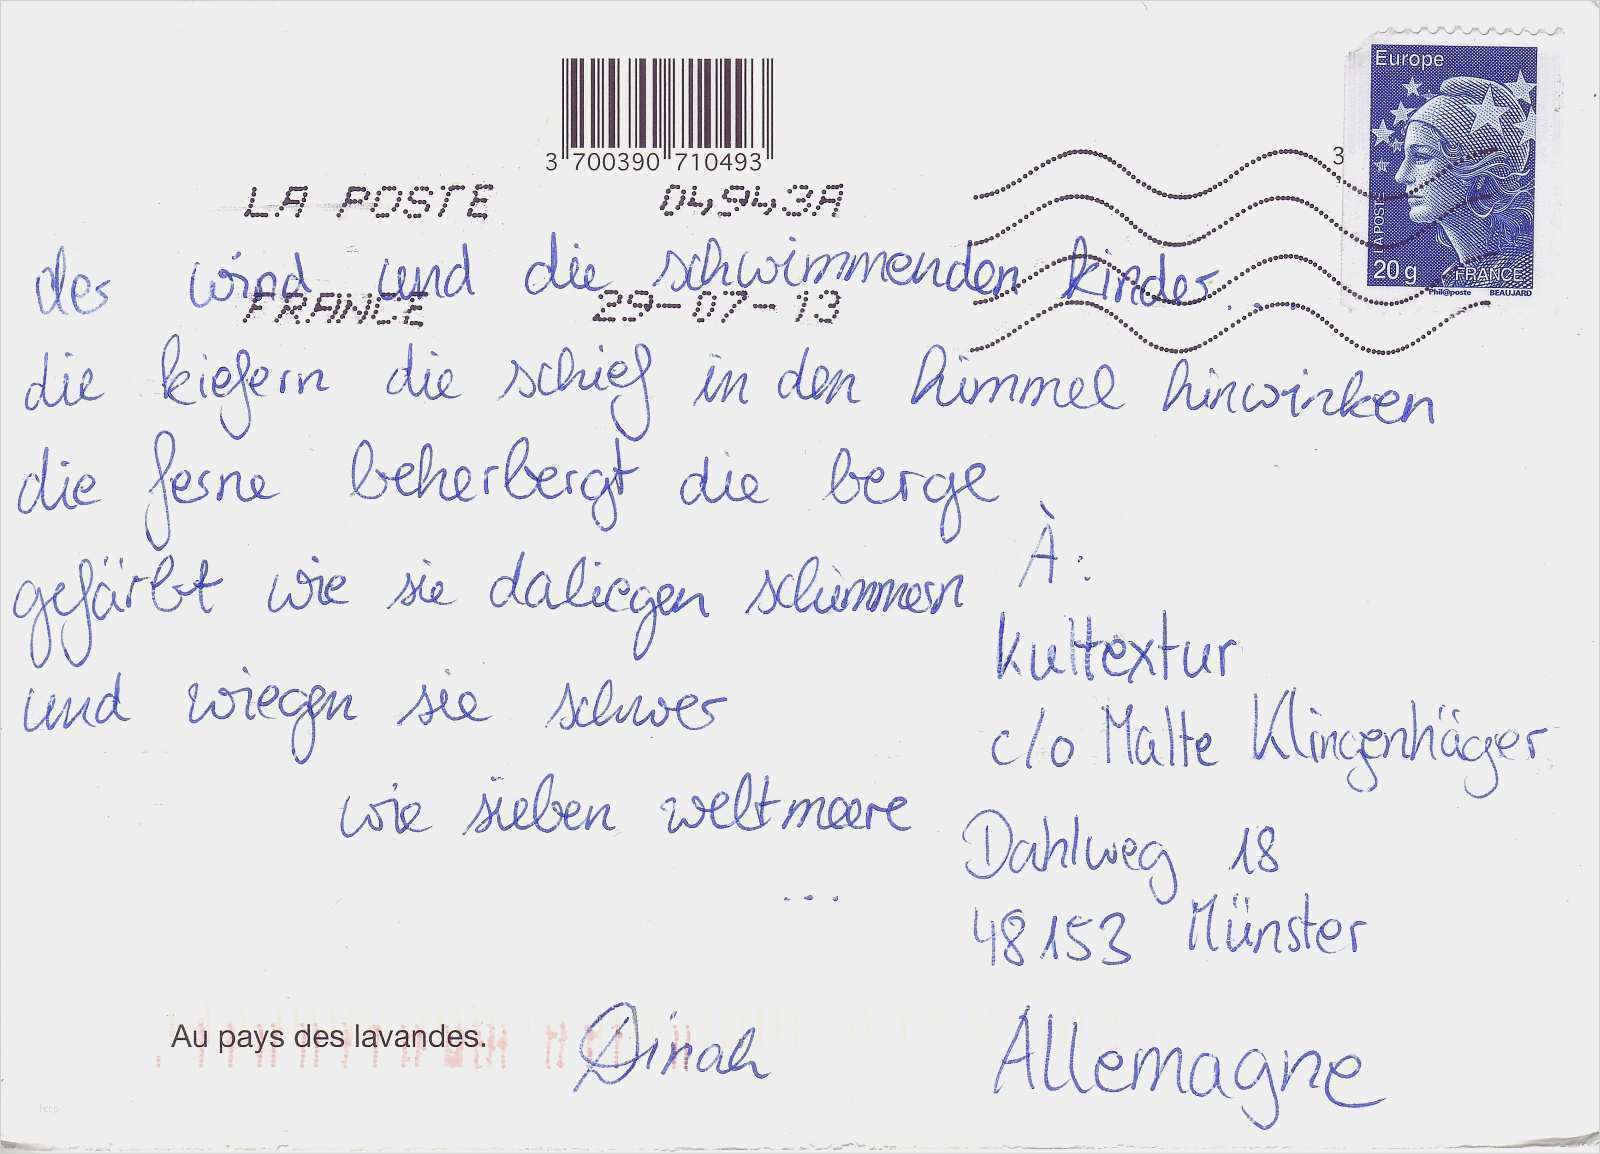 Europe
3 700390 710493
3
LA POSTE 04943A
LA POSTE
der wind und die schwimmenden kinder...
20 g FRANCE
Phil@poste BEAUJARD
FRANCE 29-07-13
die kiefern die schief in den himmel hinwinken
die ferne beherbergt die berge
À:
gefärbt wie sie daliegen schimmern
Kultextur
und wiegen sie schwer
c/o Malte Klingenhäger
wie sieben weltmeere
Dahlweg 18
...
48153 Münster
Au pays des lavandes.
Dinah
Allemagne